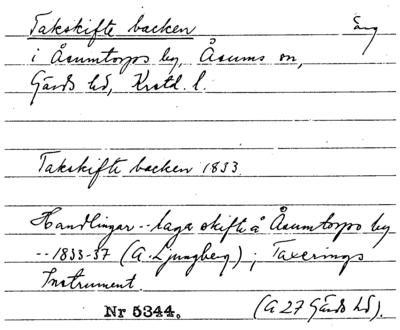 Takskifte backen Äng
i Åsumtorps by, Åsums sn,
Gärds hd, Krstd. l.
Takskifte backen 1833
Handlingar -- laga skifte å Åsumtorps by
-- 1833-37 (A. Ljungberg); Taxerings
Instrument.
Nr 5344. (A 27 Gärds hd).